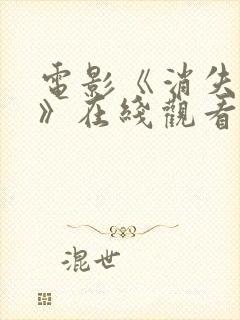 電影《消失
》在綫觀看
混世